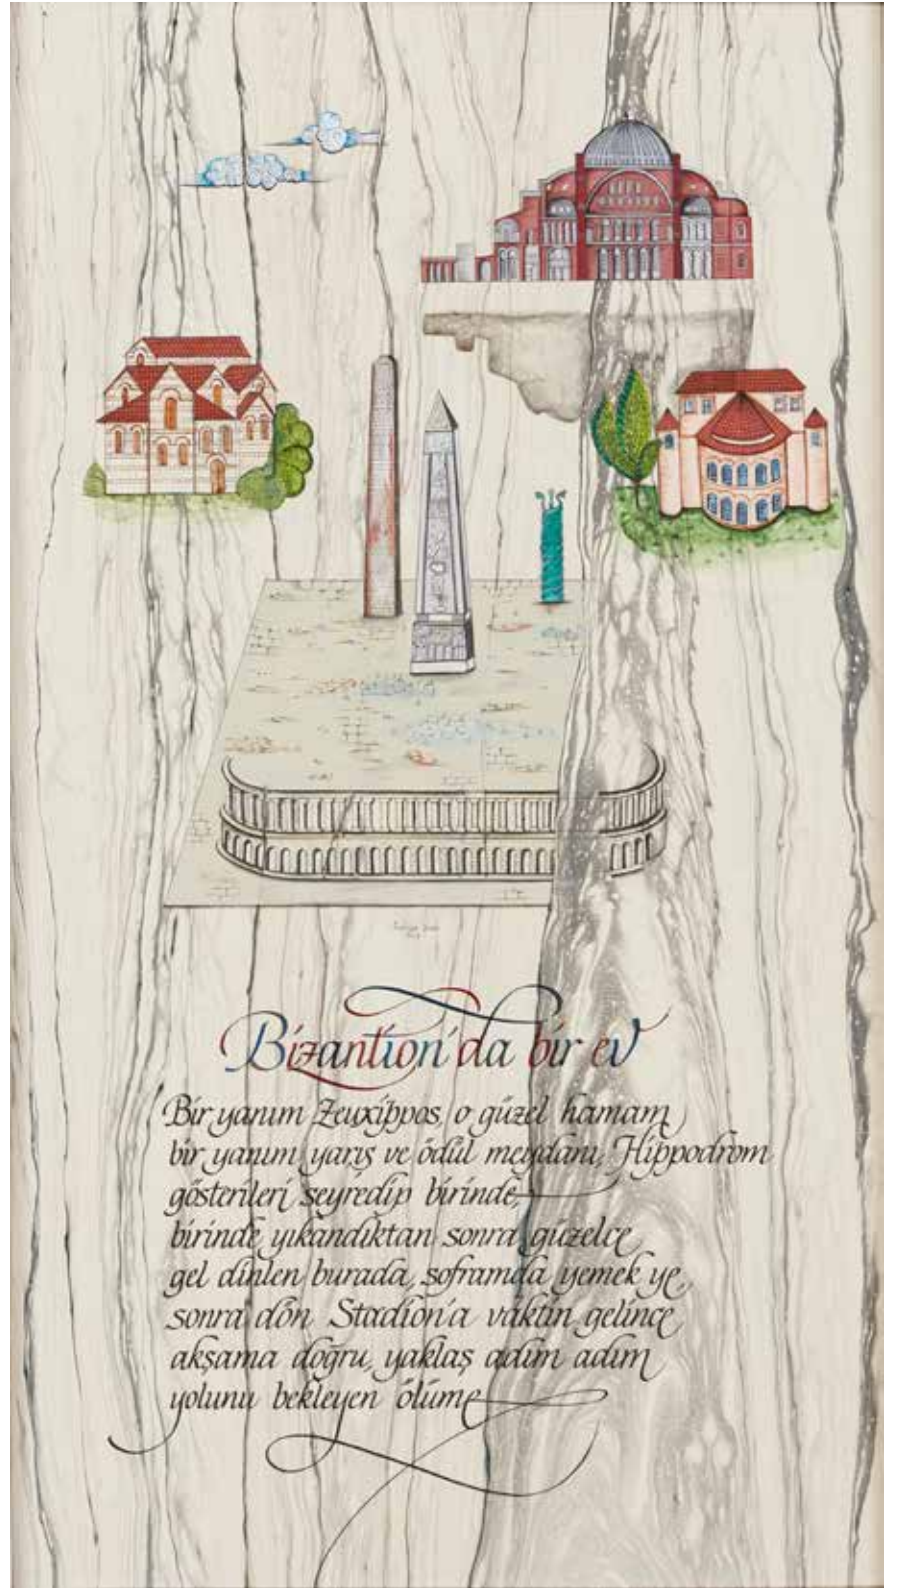 Bizantion'da bir ev
Bir yanım Zeuxippos, o güzel hamam
bir yanım yarış ve ödül meydanı, Hippodrom
gösterileri seyredip birinde,
birinde yıkandıktan sonra güzelce
gel dinlen burada, soframda yemek ye,
sonra dön Stadion'a vaktin gelince
akşama doğru, yaklaş adım adım
yolunu bekleyen ölüme